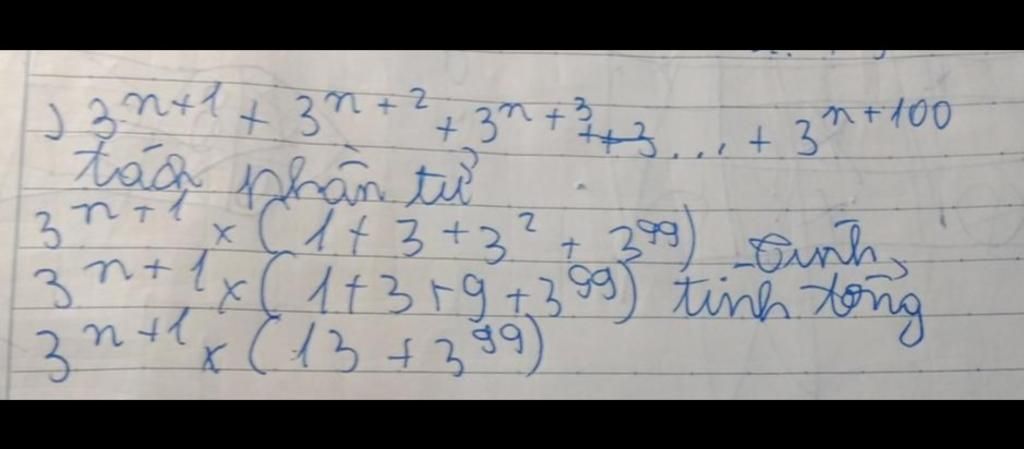 ) 3ⁿ⁺¹ + 3ⁿ⁺² + 3ⁿ⁺³ + ... + 3ⁿ⁺¹⁰⁰
tách phần tử
3ⁿ⁺¹ × (1 + 3 + 3² + 3⁹⁹)
3ⁿ⁺¹ × (1 + 3 + 9 + 3⁹⁹) tính tổng
3ⁿ⁺¹ × (13 + 3⁹⁹)